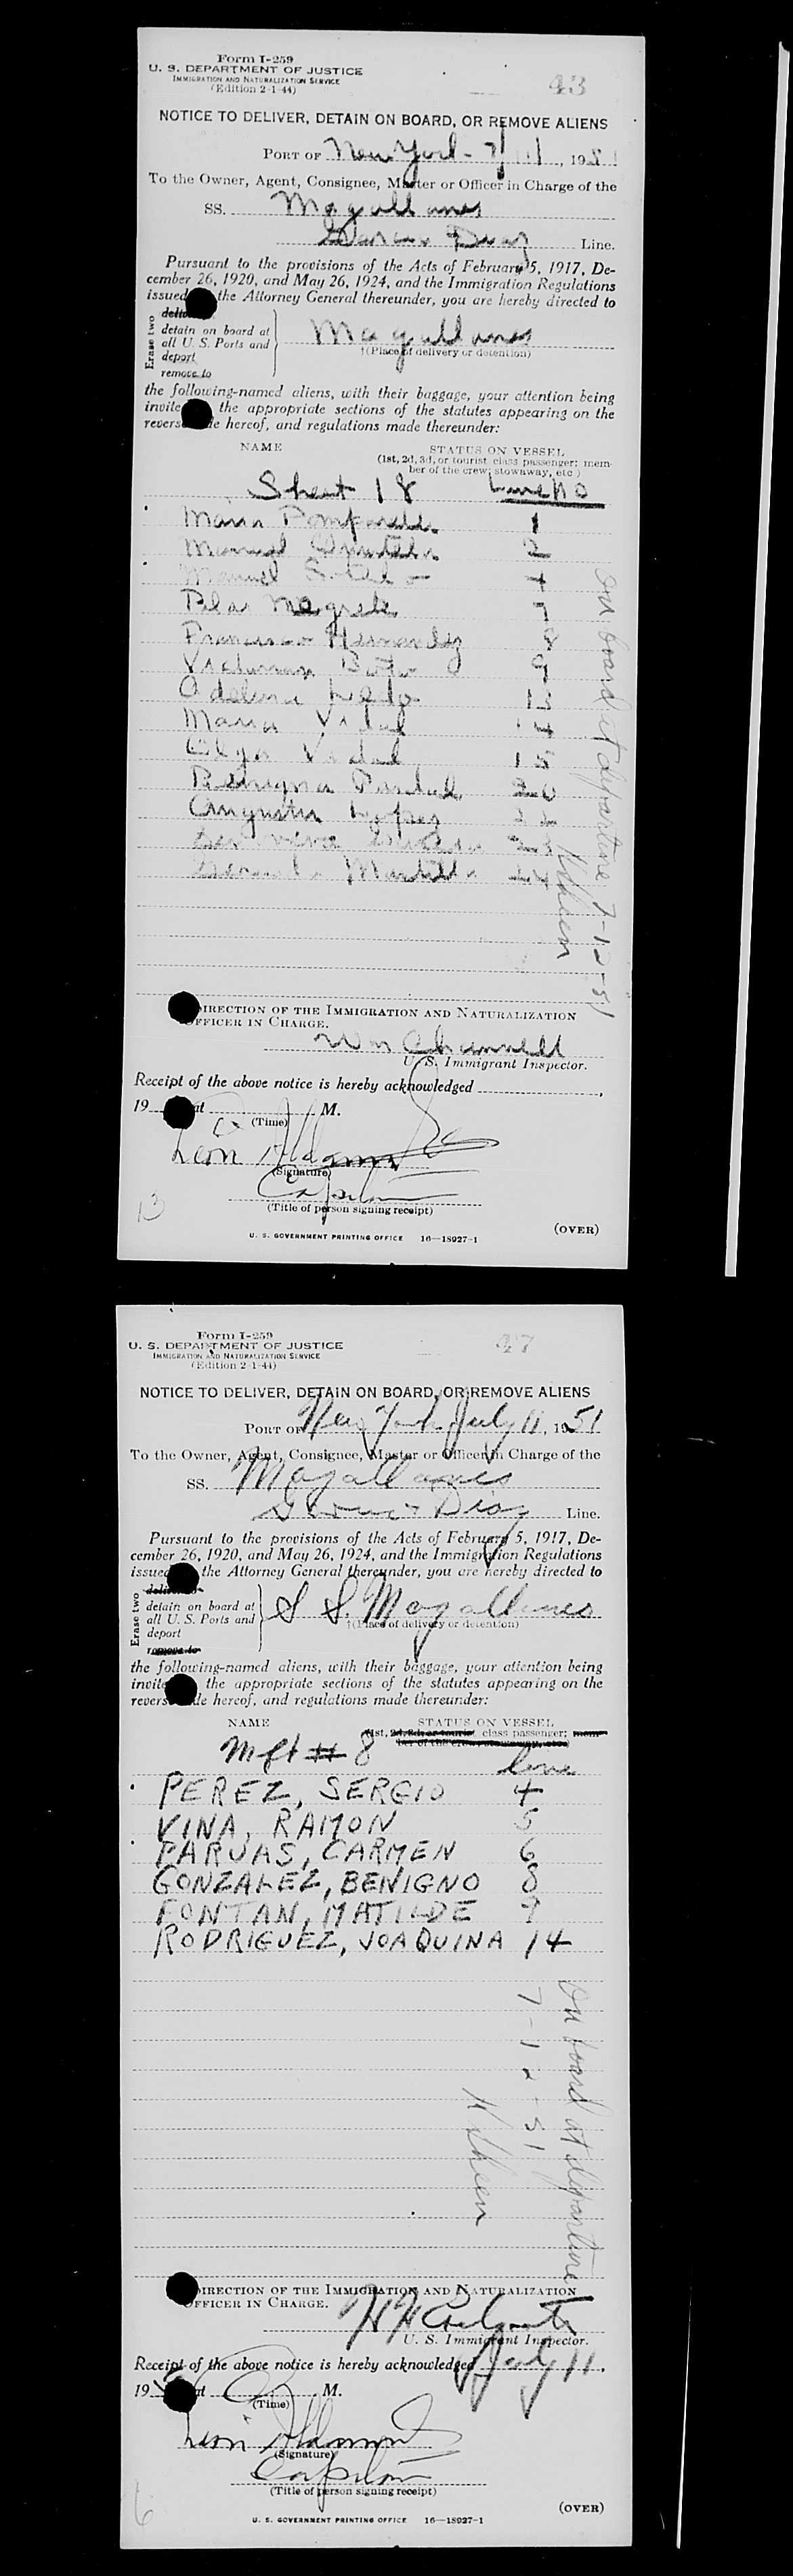 Form I-259
U. S. DEPARTMENT OF JUSTICE
IMMIGRATION AND NATURALIZATION SERVICE
(Edition 2-1-44)
43
NOTICE TO DELIVER, DETAIN ON BOARD, OR REMOVE ALIENS
PORT OF New York 7/11, 1951
To the Owner, Agent, Consignee, Master or Officer in Charge of the
SS. Magallanes
Garcia Diaz Line.
Pursuant to the provisions of the Acts of February 5, 1917, De-
cember 26, 1920, and May 26, 1924, and the Immigration Regulations
issued the Attorney General thereunder, you are hereby directed to
Erase two
deliver
detain on board at
all U. S. Ports and
deport
remove to
Magallanes
†(Place of delivery or detention)
the following-named aliens, with their baggage, your attention being
invite the appropriate sections of the statutes appearing on the
revers de hereof, and regulations made thereunder:
NAME STATUS ON VESSEL
(1st, 2d, 3d, or tourist class passenger; mem-
ber of the crew; stowaway, etc.)
Sheet 18 Line No
Maria 1
Manuel 2
Manuel 4
Pilar Negrete
Francisco Hernandez 8
9
Adelina 13
Maria Vidal 14
Olga Vidal 15
Benigna 20
Lopez
24
On board at departure 7-12-51
DIRECTION OF THE IMMIGRATION AND NATURALIZATION
OFFICER IN CHARGE.
Wm
U. S. Immigrant Inspector.
Receipt of the above notice is hereby acknowledged
19 at M.
(Time)
Leon
(Signature)
(Title of person signing receipt)
13
(OVER)
U. S. GOVERNMENT PRINTING OFFICE 16—18927-1
Form I-259
U. S. DEPARTMENT OF JUSTICE
IMMIGRATION AND NATURALIZATION SERVICE
(Edition 2-1-44)
47
NOTICE TO DELIVER, DETAIN ON BOARD, OR REMOVE ALIENS
PORT OF New York July 11, 1951
To the Owner, Agent, Consignee, Master or Officer in Charge of the
SS. Magallanes
Garcia Diaz Line.
Pursuant to the provisions of the Acts of February 5, 1917, De-
cember 26, 1920, and May 26, 1924, and the Immigration Regulations
issued the Attorney General thereunder, you are hereby directed to
Erase two
deliver
detain on board at
all U. S. Ports and
deport
remove to
S S. Magallanes
†(Place of delivery or detention)
the following-named aliens, with their baggage, your attention being
invite the appropriate sections of the statutes appearing on the
revers de hereof, and regulations made thereunder:
NAME STATUS ON VESSEL
(1st, 2d, 3d, or tourist class passenger; mem-
ber of the crew, stowaway, etc.)
Mft # 8 line
PEREZ, SERGIO 4
VINA, RAMON 5
PARUAS, CARMEN 6
GONZALEZ, BENIGNO 8
FONTAN, MATILDE 9
RODRIGUEZ, JOAQUINA 14
On board at departure
7-12-51
DIRECTION OF THE IMMIGRATION AND NATURALIZATION
OFFICER IN CHARGE.
U. S. Immigrant Inspector.
Receipt of the above notice is hereby acknowledged July 11,
19 at M.
(Time)
Leon
(Signature)
(Title of person signing receipt)
6
(OVER)
U. S. GOVERNMENT PRINTING OFFICE 16—18927-1